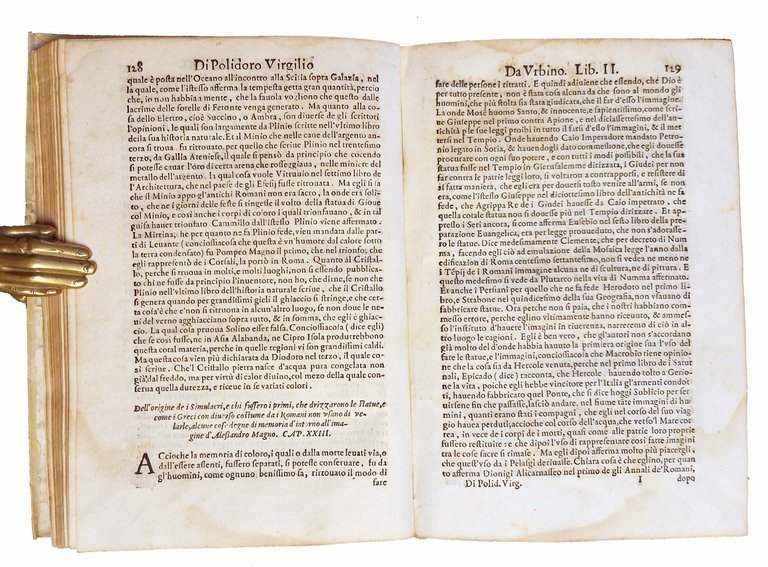 128 Di Polidoro Virgilio
quale è posta nell'Oceano all'incontro alla Scitia sopra Galazia, nel
la quale, come l'istesso afferma, la tempesta getta gran quantità, percio
che, io non habbia mente, che la fauola vogliono che questo dalle
lacrime delle sorelle di Fetonte venga generato. Ma quanto alla co
sa dello Elettro, cioè Succino, o Ambra, son diuerse de gli scrittori
l'opinioni, le quali son largamente da Plinio scritte nell'vltimo libro
della sua historia naturale. Et il Minio che nelle caue dell'argento an
cora si troua. fu ritrouato, per quello che scriue Plinio nel trentesimo
terzo, da Gallia Ateniese, il quale si pensò da principio che cocendo
si potesse cauar l'oro di certa arena che rosseggiaua, nelle miniere del
metallo dell'argento. La qual cosa vuole Vitruuio nel settimo libro de
l'Architettura, che nel paese de gli Efesij fusse ritrouata. Ma egli si sa
che il Minio appo gl'antichi Romani non era sacro, la onde era soli
to, che ne i giorni delle feste si tingesse il volto della statua di Gioue
col Minio, e così anche i corpi di coloro i quali trionfauano, & in tal
guisa hauer trionfato Cammillo dall'istesso Plinio viene affermato.
La Mirrina; he per quanto ne fa Plinio fede, vien mandata dalle par
ti di Leuante (conciosliacosa che questa è vn'humore dal calore sotto
la terra condensato) su Pompeo Magno il primo, che nel trionfo, che
egli rappresentò de i Corsali, la portò in Roma. Quanto al Cristal
lo, perche si truoua in molti, molti luoghi, non si essendo pubblica
to chi ne fusse da principio l'inuentore, non ho, che dirne, se non che
Plinio nell'vltimo libro dell'historia naturale scriue, che il Cristallo
si genera quando per grandissimi gieli il ghiaccio si stringe, e che cer
ta cosa è che e'non si ritroua in alcun'altro luogo, se non doue le ne
ui del verno agghiacciano sopra tutto, & in somma, che egli è ghiac
cio. La qual cosa pruoua Solino esser falsa. Conciosliacosa (dice egli)
che se così fusse, ne in Asia Alabanda, ne Cipro Isola produrrebbono
questa cotal materia, perche in quelle regioni vi son grandissimi caldi.
Ma questa cosa vien più dichiarata da Diodoro nel terzo, il quale co
sì scriue. Che'l Cristallo pietra nasce d'acqua pura congelata non
già dal freddo, ma per virtù di calor diuino, col mezo della quale con
serua quella durezza, e riceue in se variati colori.
Dell'origine de i Simulacri, e chi fussero i primi, che drizzarono le statue, e
come i Greci con diuerso costume da i Romani non vsano di ve-
larle, alcune cose degne di memoria d'intorno all'ima
gine d'Alesandro Magno. CAP. XXIII.
Accioche la memoria di coloro, i quali o dalla morte leuati via, o
dall'essere assenti, fussero separati, si potesse conseruare, fu da
gl'huomini, come ognuno benissimo sa, ritrouato il modo di
fare
Da Vrbino. Lib. II. 129
fare delle persone i ritratti. E quindi aduiene che essendo, che Dio è
per tutto presente, non è stata alcuna cosa da che sono al mondo gli
huomini, che più stolta sia stata giudicata, che il far d'esso l'immagine.
La onde Mosè huomo Santo, & innocente, e sapientissimo, come scri
ue Giuseppe nel primo contra Apione, e nel diciassettesimo dell'an
tichità p le sue leggi proibì in tutto il farsi d'esso l'immagini, & il met
tersi nel Tempio. Onde hauendo Caio Imperadore mandato Petro-
nio legato in Soria, & hauendogli dato commessione, che egli douesse
procurare con ogni suo potere, e con tutti i modi possibili, che la sua
statua fusse nel Tempio in Gierusalemme dirizzata, i Giudei per non
far contra le patrie leggi loro, si voltaron a contrapporsi, e resistere di
sì fatta maniera, che egli era per douersi tosto venire all'armi, se non
era, come l'istesso Giuseppe nel diciottesimo libro dell'antichità ne fa
fede, che Agrippa Re de i Giudei hauesse da Caio impetrato, che
quella cotale statua non si douesse più nel Tempio dirizzare. Et ap
presso i Seri ancora, si come afferma Eusebio nel sesto libro della pre
parazione Euangelica, era per legge prouueduto, che non s'adorasse
ro le statue. Dice medesimamente Clemente, che per decreto di Num
ma, facendo egli ciò ad emulazione della Mosaica legge l'anno dalla
edificazion di Roma centesimo settantesimo, non si vedea ne meno ne
i Tēpij de i Romani immagine alcuna ne di scultura, ne di pittura. E
questo medesimo si vede da Plutarco nella vita di Numma affermato.
Et anche i Persiani per quello che ne fa fede Herodoto nel primo li
bro, e Strabone nel quindicesimo della sua Geografia, non vsauano di
fabbricare statue. Ora perche non si paia, che i nostri habbiano com-
messo errore, perche eglino vltimamente hanno riceuute, & ammes-
so l'instituto d'hauere l'immagini in riuerenza, narreremo di ciò in al
tro luogo le cagioni. Egli è ben vero, che gl'autori non s'accordano
già molto del donde habbia hauuto la primiera origine sua l'vso del
fare le statue, e l'immagini, conciosliacosa che Macrobio tiene opinio-
ne che la cosa sia da Hercole venuta, perche nel primo libro de i Satur
nali, Epicado (dice) racconta, che Hercole hauendo tolto a Gerio-
ne la vita, poiche egli hebbe vincitore per l'Italia gl'armenti condot
ti, hauendo fabbricato quel Ponte, che si dice hoggi Sublicio per ser
uirsene fin che passasse, lasciò andare nel fiume tate immagini di hu-
mini, quanti erano stati i compagni, che egli nel corso del suo viag-
gio hauea perduti; acciò che col corso dell'acqua, che verso'l Mare cor
rea, in vece de i corpi de i morti, quasi come alle patrie loro proprie
fussero restituite: e che dipoi l'vso di rappresentare così fatte imagini
tra le cose sacre si rimase. Ma egli dipoi afferma molto più piacergli,
che quest'vso da i Pelasgi deriuasse. Chiara cosa è che eglino, per quan
to afferma Dionigi Alicarnasseo nel primo de gli Annali de'Romani,
Di Polid. Virg. I dopo